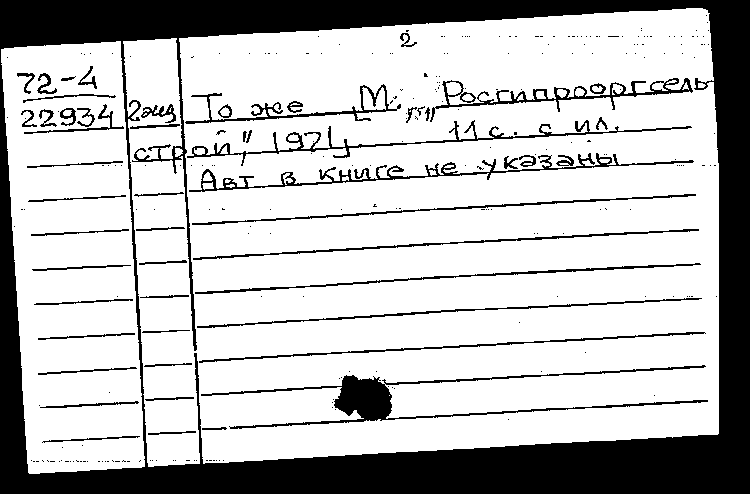 2
72-4
22934 2 экз То же [М., „Росгипрооргсель
строй", 1971] 11 с. с ил.
Авт в книге не указаны